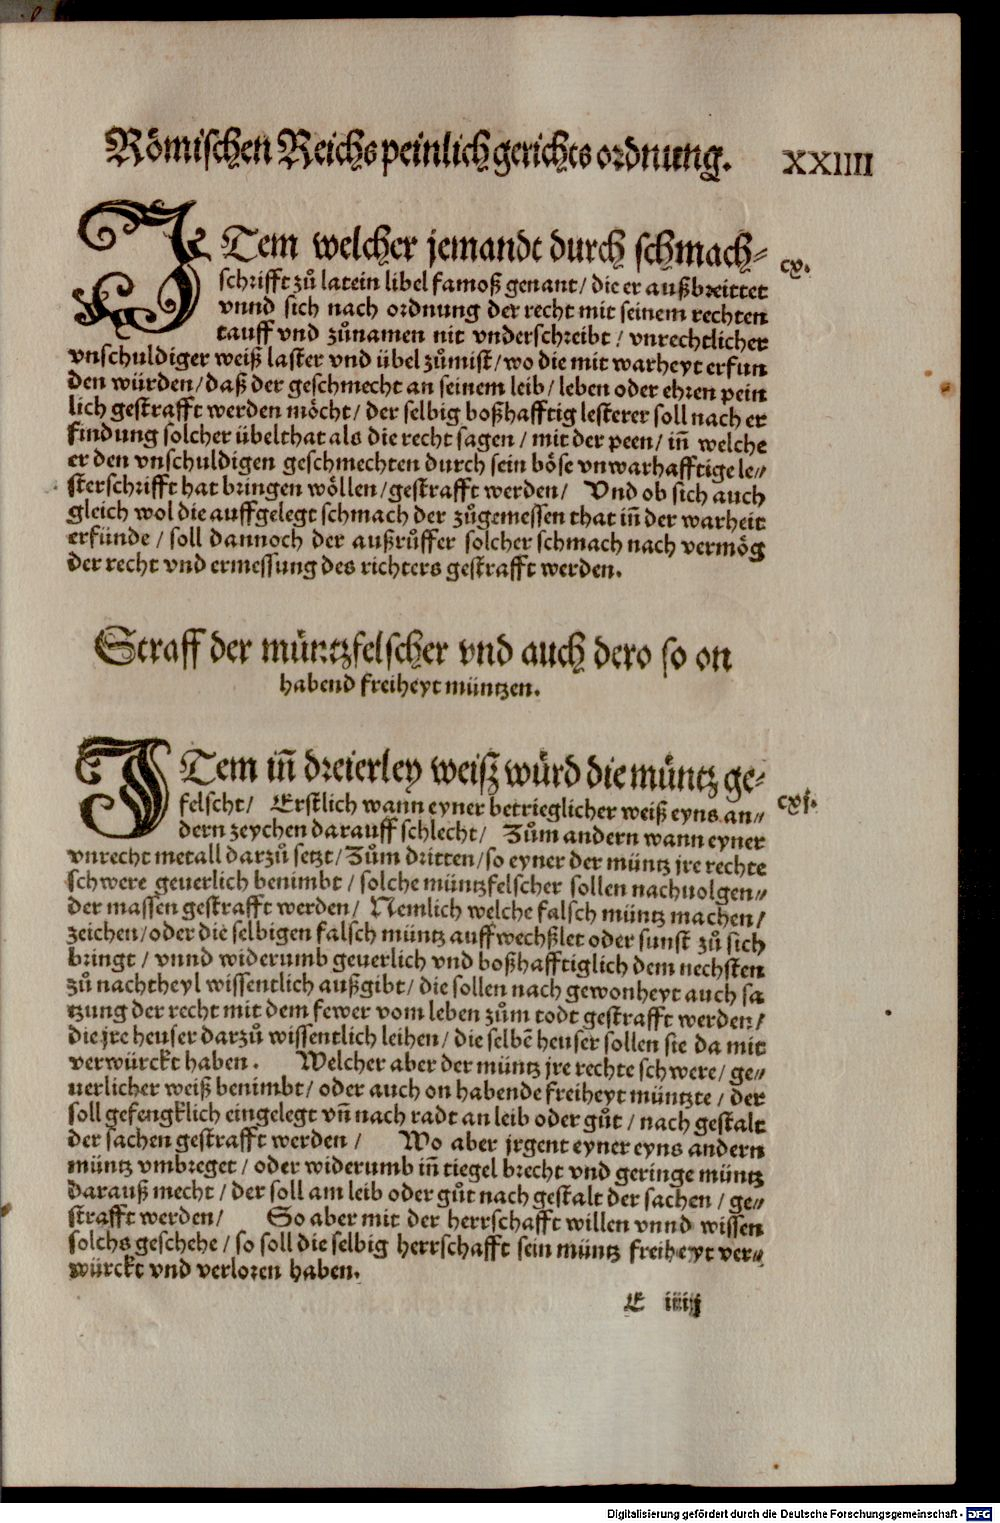 Römischen Reichs peinlich gerichts ordnung. XXIIII
ITem welcher jemandt durch schmach⸗ cx.
schrifft zů latein libel famoß genant / die er außbreittet
vnnd sich nach ordnung der recht mit seinem rechten
tauff vnd zůnamen nit vnderschreibt / vnrechtlicher
vnschuldiger weiß laster vnd übel zůmist / wo die mit warheyt erfun
den würden / daß der geschmecht an seinem leib / leben oder ehren pein
lich gestrafft werden möcht / der selbig boßhafftig lesterer soll nach er
findung solcher übelthat als die recht sagen / mit der peen / iñ welche
er den vnschuldigen geschmechten durch sein böse vnwarhafftige le⸗
sterschrifft hat bringen wöllen / gestrafft werden / Vnd ob sich auch
gleich wol die auffgelegt schmach der zůgemessen that iñ der warheit
erfünde / soll dannoch der außrůffer solcher schmach nach vermög
der recht vnd ermessung des richters gestrafft werden.
Straff der müntzfelscher vnd auch dero so on
habend freiheyt müntzen.
ITem iñ dreierley weiß würd die müntz ge⸗ cxj.
felscht / Erstlich wann eyner betrieglicher weiß eyns an⸗
dern zeychen darauff schlecht / Zům andern wann eyner
vnrecht metall darzů setzt / Zům dritten / so eyner der müntz jre rechte
schwere geuerlich benimbt / solche müntzfelscher sollen nachuolgen⸗
der massen gestrafft werden / Nemlich welche falsch müntz machen /
zeichen / oder die selbigen falsch müntz auffwechßlet oder sunst zů sich
bringt / vnnd widerumb geuerlich vnd boßhafftiglich dem nechsten
zů nachtheyl wissentlich außgibt / die sollen nach gewonheyt auch sa
tzung der recht mit dem fewer vom leben zům todt gestrafft werden /
die jre heuser darzů wissentlich leihen / die selbẽ heuser sollen sie da mit
verwürckt haben. Welcher aber der müntz jre rechte schwere / ge⸗
uerlicher weiß benimbt / oder auch on habende freiheyt müntzte / der
soll gefengklich eingelegt vñ nach radt an leib oder gůt / nach gestalt
der sachen gestrafft werden / Wo aber jrgent eyner eyns andern
müntz vmbreget / oder widerumb iñ tiegel brecht vnd geringe müntz
darauß mecht / der soll am leib oder gůt nach gestalt der sachen / ge⸗
strafft werden / So aber mit der herrschafft willen vnnd wissen
solchs geschehe / so soll die selbig herrschafft sein müntz freiheyt ver⸗
würckt vnd verloren haben.
E iiij
Digitalisierung gefördert durch die Deutsche Forschungsgemeinschaft - DFG